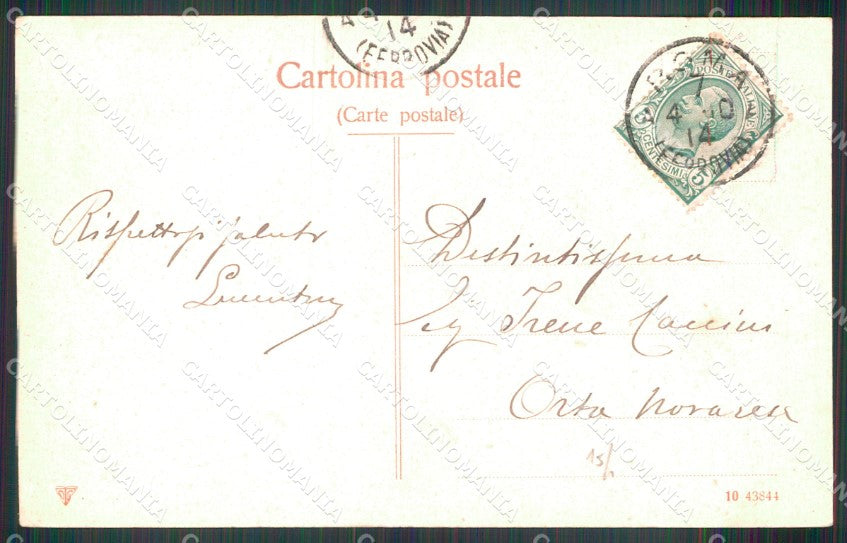 14
(FERROVIA)
Cartolina postale
(Carte postale)
ROMA
7
4 10
14
(FERROVIA)
POSTE ITALIANE
5 CENTESIMI 5
Rispettosi saluti
Distintissima
Sig Irene
Orta Novarese
15/
10 43844
CARTOLINOMANIA